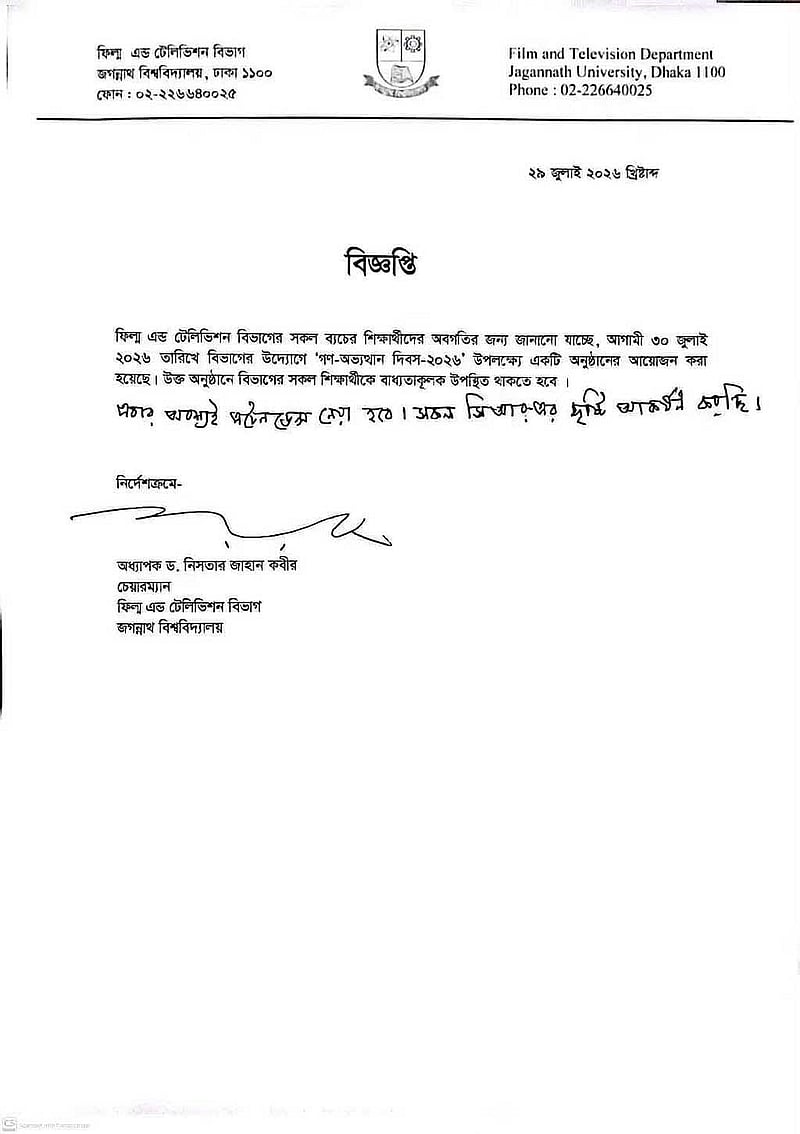 ফিল্ম এন্ড টেলিভিশন বিভাগ
জগন্নাথ বিশ্ববিদ্যালয়, ঢাকা ১১০০
ফোন : ০২-২২৬৬৪০০২৫
Film and Television Department
Jagannath University, Dhaka 1100
Phone : 02-226640025
২৯ জুলাই ২০২৬ খ্রিষ্টাব্দ
বিজ্ঞপ্তি
ফিল্ম এন্ড টেলিভিশন বিভাগের সকল ব্যচের শিক্ষার্থীদের অবগতির জন্য জানানো যাচ্ছে, আগামী ৩০ জুলাই
২০২৬ তারিখে বিভাগের উদ্যোগে 'গণ-অভ্যত্থান দিবস-২০২৬' উপলক্ষ্যে একটি অনুষ্ঠানের আয়োজন করা
হয়েছে। উক্ত অনুষ্ঠানে বিভাগের সকল শিক্ষার্থীকে বাধ্যতাকূলক উপস্থিত থাকতে হবে ।
এবার অবশ্যই এটেনডেন্স নেয়া হবে। সকল সিআর-এর দৃষ্টি আকর্ষণ করছি।
নির্দেশক্রমে-
অধ্যাপক ড. নিসতার জাহান কবীর
চেয়ারম্যান
ফিল্ম এন্ড টেলিভিশন বিভাগ
জগন্নাথ বিশ্ববিদ্যালয়
CS